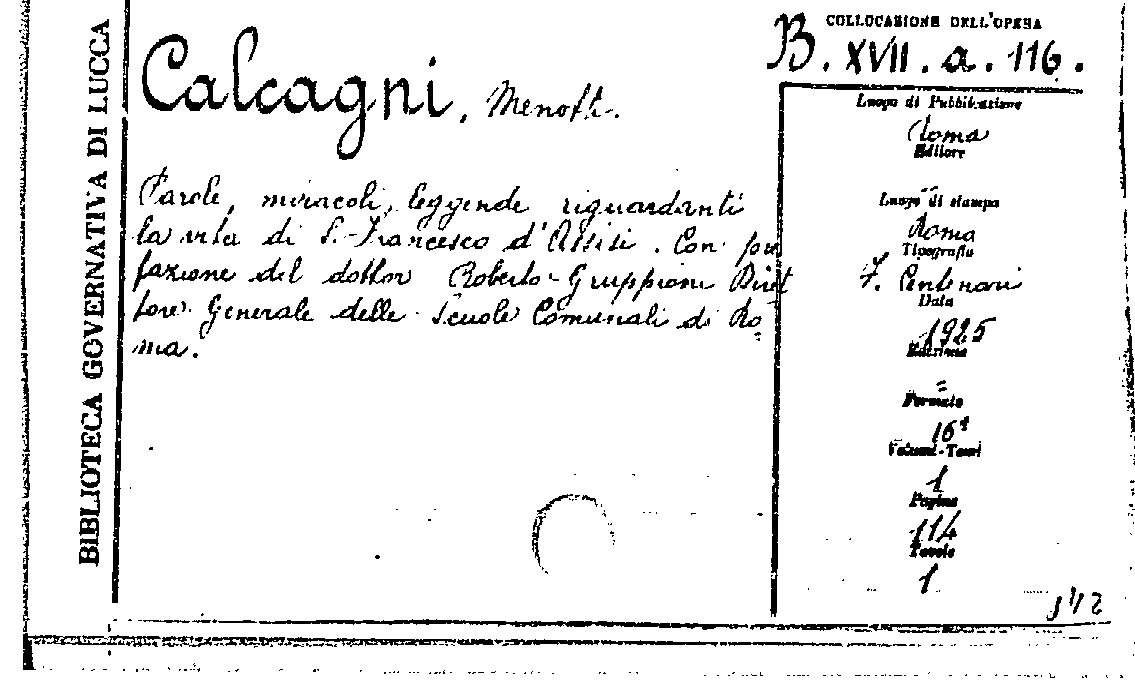 BIBLIOTECA GOVERNATIVA DI LUCCA
Calcagni, Menotti.
Parole, miracoli, leggende riguardanti
la vita di S. Francesco d'Assisi. Con pre
fazione del dottor Roberto Gruppioni Diret
tore Generale delle Scuole Comunali di Ro=
ma.
COLLOCAZIONE DELL'OPERA
B. XVII. a. 116.
Luogo di Pubblicazione
Roma
Editore
=
Luogo di stampa
Roma
Tipografia
F. Centenari
Data
1925
Edizione
=
Formato
16°
Volumi-Tomi
1
Pagine
114
Tavole
1